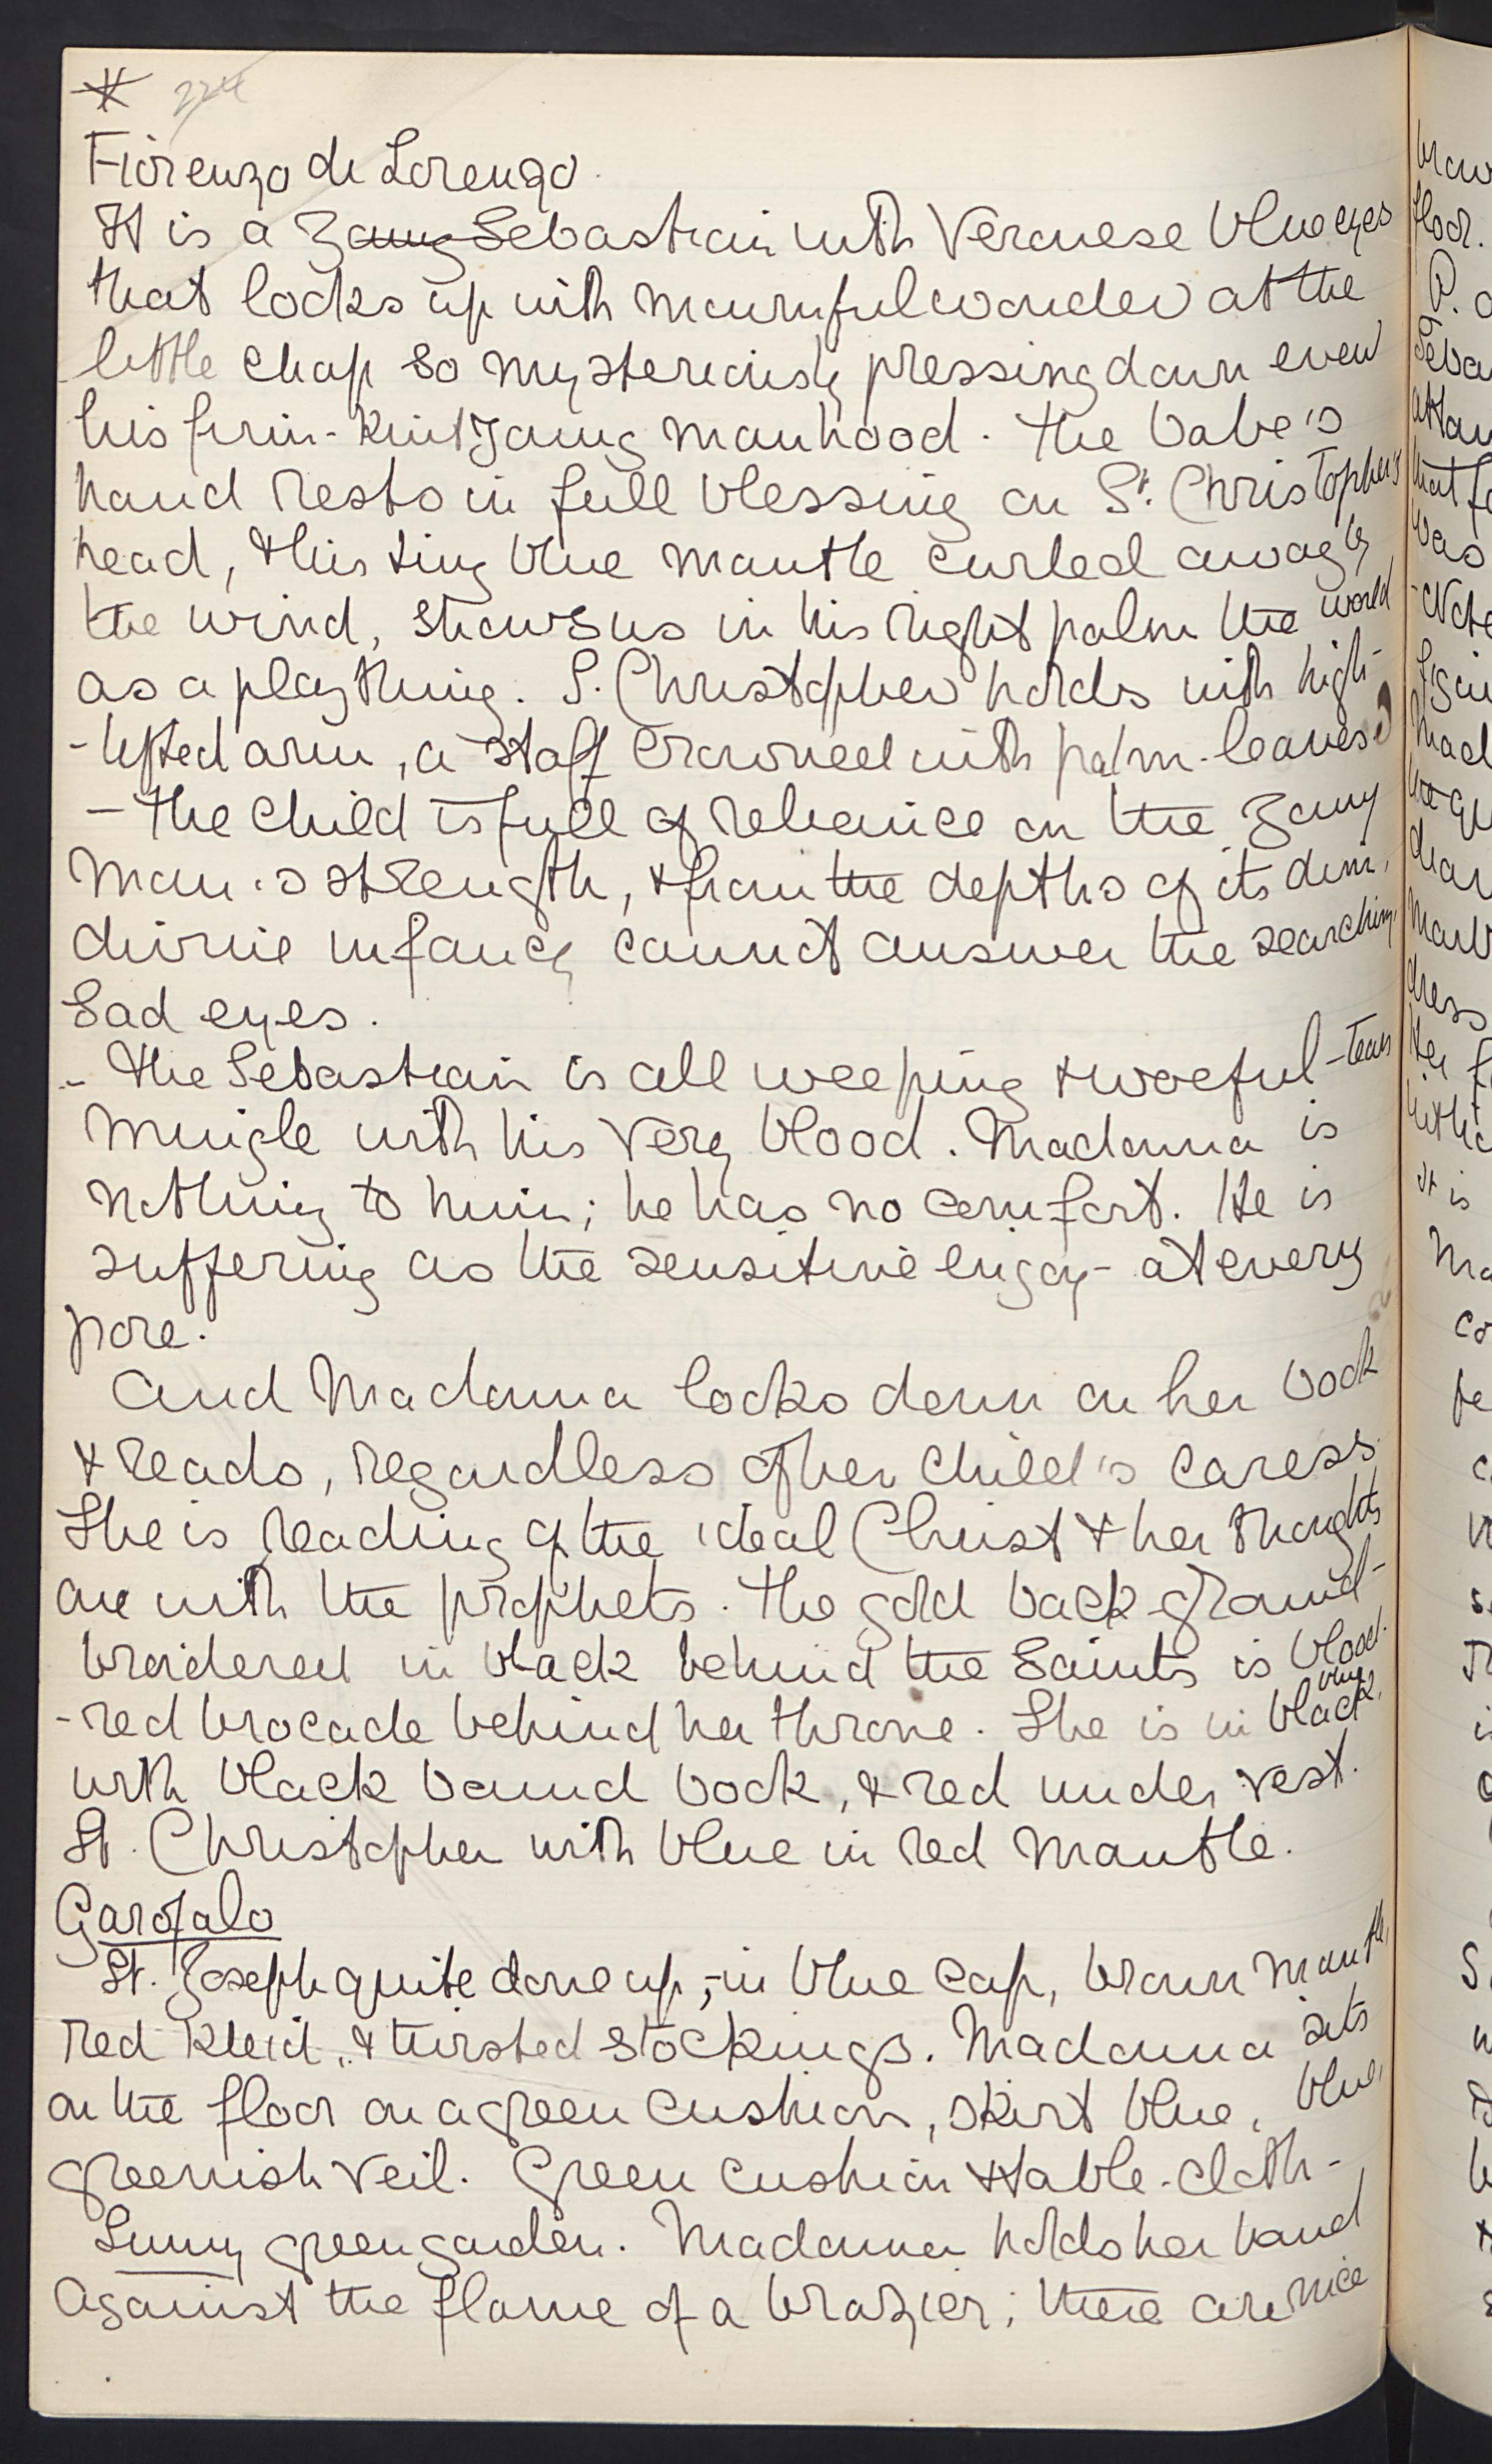 * 224
Fiorenzo di Lorenzo.
It is a young Sebastian with Veronese blue eyes
that looks up with mournful wonder at the
little chap so mysteriously pressing down even
his firm-knit young manhood. The babe's
hand rests in full blessing on St. Christopher's
head, & his tiny blue mantle curled away by
the wind, shows us in his right palm the world
as a plaything. S. Christopher holds with high-
-lifted arm, a staff crowned with palm-leaves
- The child is full of reliance on the young
man's strength, & from the depths of its dim,
divine infancy cannot answer the searching
sad eyes.
- The Sebastian is all weeping & woeful - tears
mingle with his very blood. Madonna is
nothing to him; he has no comfort. He is
suffering as the sensitive enjoy - at every
pore.
And Madonna looks down on her book
& reads, regardless of her child's caress.
She is reading of the ideal Christ & her thoughts
are with the prophets. The gold back-ground -
broidered in black behind the Saints is blood-
-red brocade behind her throne. She is in blue black,
with black bound book, & red under vest.
St. Christopher with blue in red mantle.
Garofalo
St. Joseph quite done up, - in blue cap, brown mantle,
red kleid, & twisted stockings. Madonna sits
on the floor on a green cushion, skirt blue, blue,
greenish veil. Green cushion & table-cloth -
Sunny green garden. Madonna holds her hand
against the flame of a brazier; there are nice